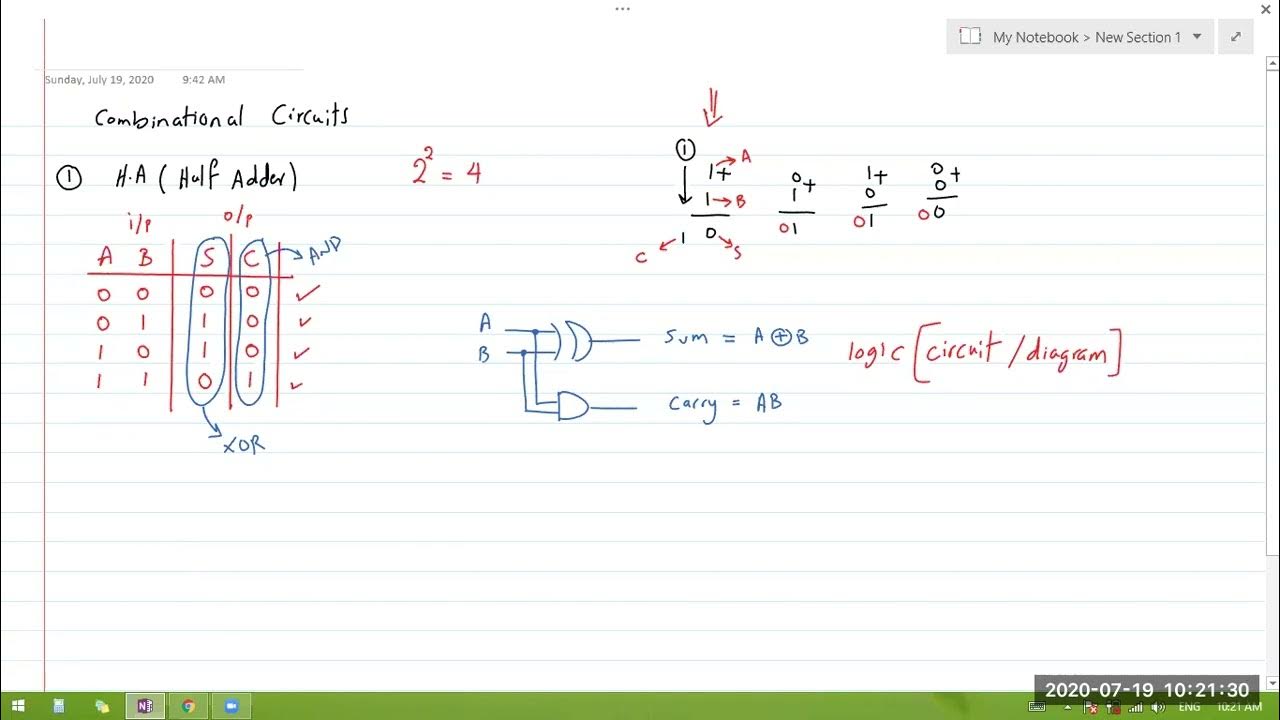 My Notebook > New Section 1
Sunday, July 19, 2020 9:42 AM
Combinational Circuits
① H.A ( Half Adder)
2² = 4
i/p o/p
A B S C → AND
0 0 0 0 ✓
0 1 1 0 ✓
1 0 1 0 ✓
1 1 0 1 ✓
XOR
①
1+ → A 0+ 1+ 0+
1 → B 1 0 0
1 0 01 01 00
C S
A Sum = A ⊕ B
B
Carry = AB
logic [circuit / diagram]
2020-07-19 10:21:30
ENG 10:21 AM